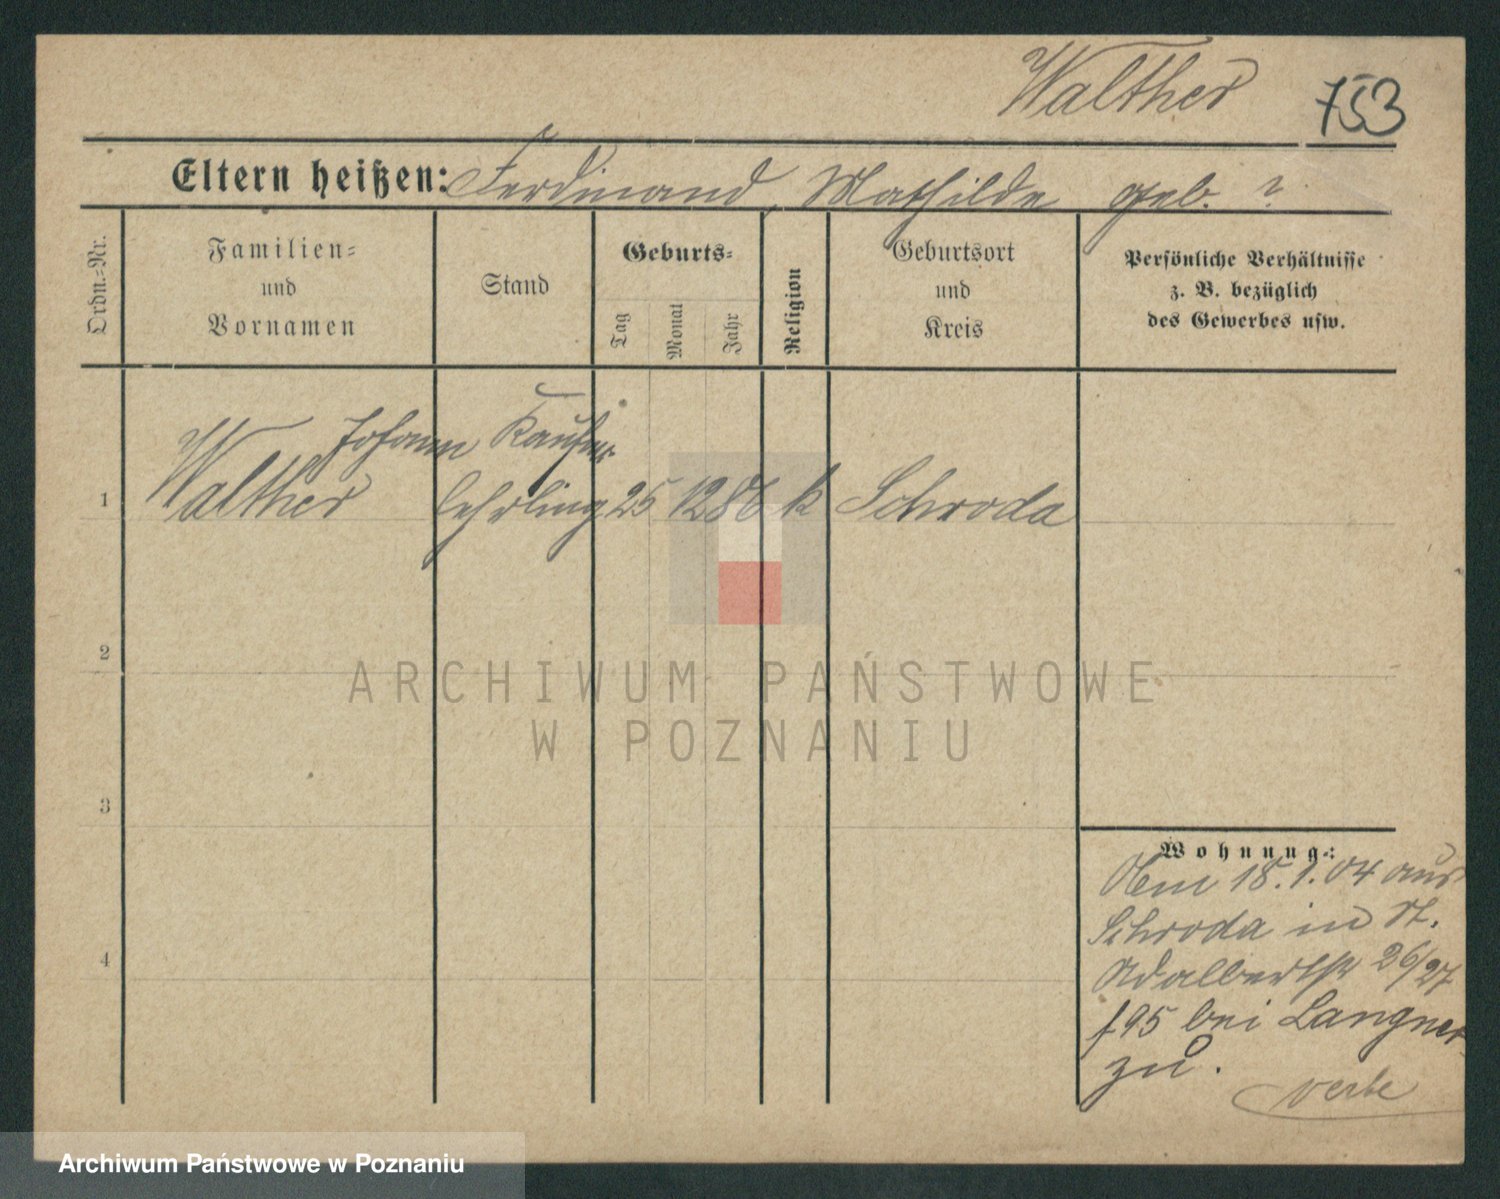 Walther 753
Eltern heißen: Ferdinand, Mathilde geb. ?
Ordn.-Nr.
Familien-
und
Vornamen
Stand
Geburts-
Tag
Monat
Jahr
Religion
Geburtsort
und
Kreis
Persönliche Verhältnisse
z. B. bezüglich
des Gewerbes usw.
Johann Kaufm.
1 Walther lehrling 25 12 86 k Schroda
2
3
4
ARCHIWUM PAŃSTWOWE
W POZNANIU
Wohnung:
18.1.04 aus
Schroda in St.
Adalbertstr 26/27
bei Langner
zu.
Archiwum Państwowe w Poznaniu